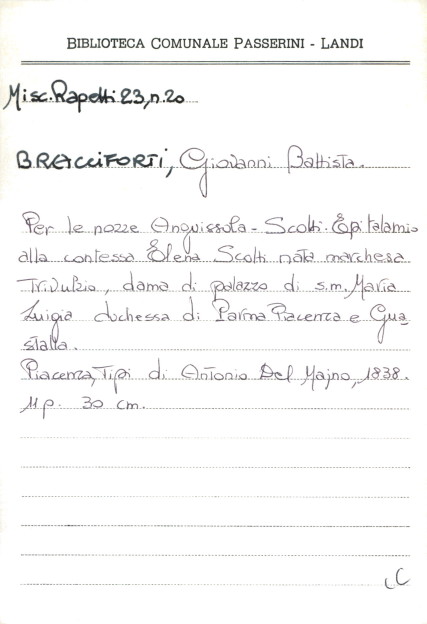 BIBLIOTECA COMUNALE PASSERINI - LANDI
Misc. Rapetti 23, n. 20
BRACCIFORTI, Giovanni Battista.
Per le nozze Anguissola - Scotti. Epitalamio
alla contessa Elena Scotti nata marchesa
Trivulzio, dama di palazzo di s.m. Maria
Luigia duchessa di Parma Piacenza e Gua=
stalla.
Piacenza, Tipi di Antonio Del Majno, 1838.
11 p. 30 cm.